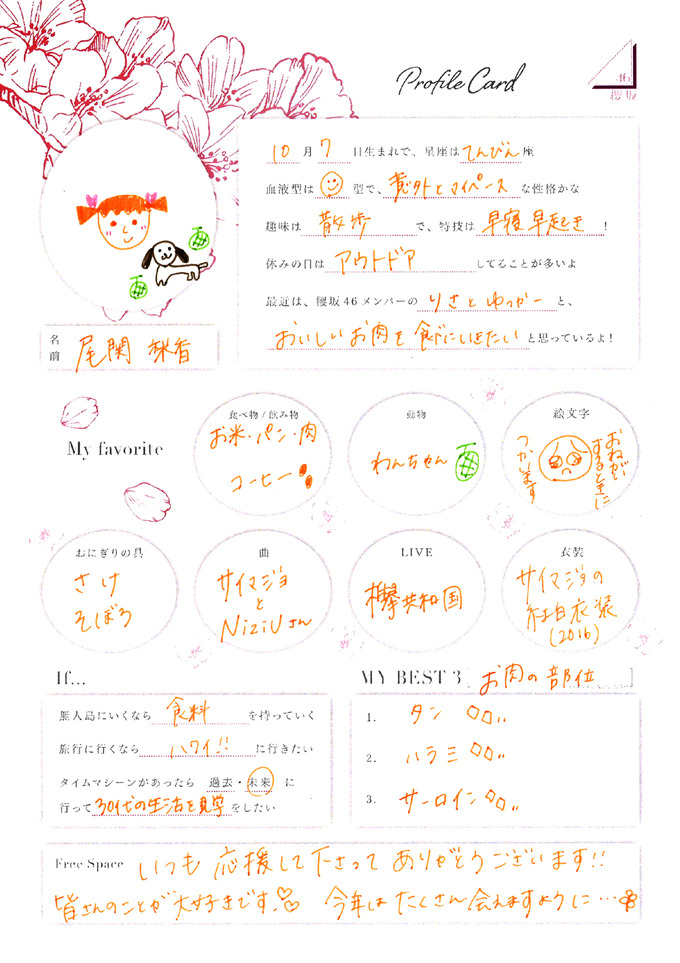 Profile Card
46
櫻坂
10月7日生まれで、星座はてんびん座
血液型は型で、意外とマイペースな性格かな
趣味は散歩で、特技は早寝早起き!
休みの日はアウトドアしてることが多いよ
最近は、櫻坂46メンバーのりさとゆっかーと、
おいしいお肉を食べにいきたいと思っているよ!
名前 尾関 梨香
My favorite
食べ物/飲み物
お米・パン・肉
コーヒー
動物
わんちゃん
絵文字
おねがい
するときに
つかいます
おにぎりの具
さけ
そぼろ
曲
サイマジョ
と
NiziUさん
LIVE
欅共和国
衣装
サイマジョの
紅白衣装
(2016)
If...
無人島にいくなら食料を持っていく
旅行に行くならハワイ!!に行きたい
タイムマシーンがあったら 過去・未来 に
行って30代の生活を見学をしたい
MY BEST 3 [お肉の部位]
1. タン
2. ハラミ
3. サーロイン
Free Space いつも応援して下さってありがとうございます!!
皆さんのことが大好きです。♡ 今年はたくさん会えますように…